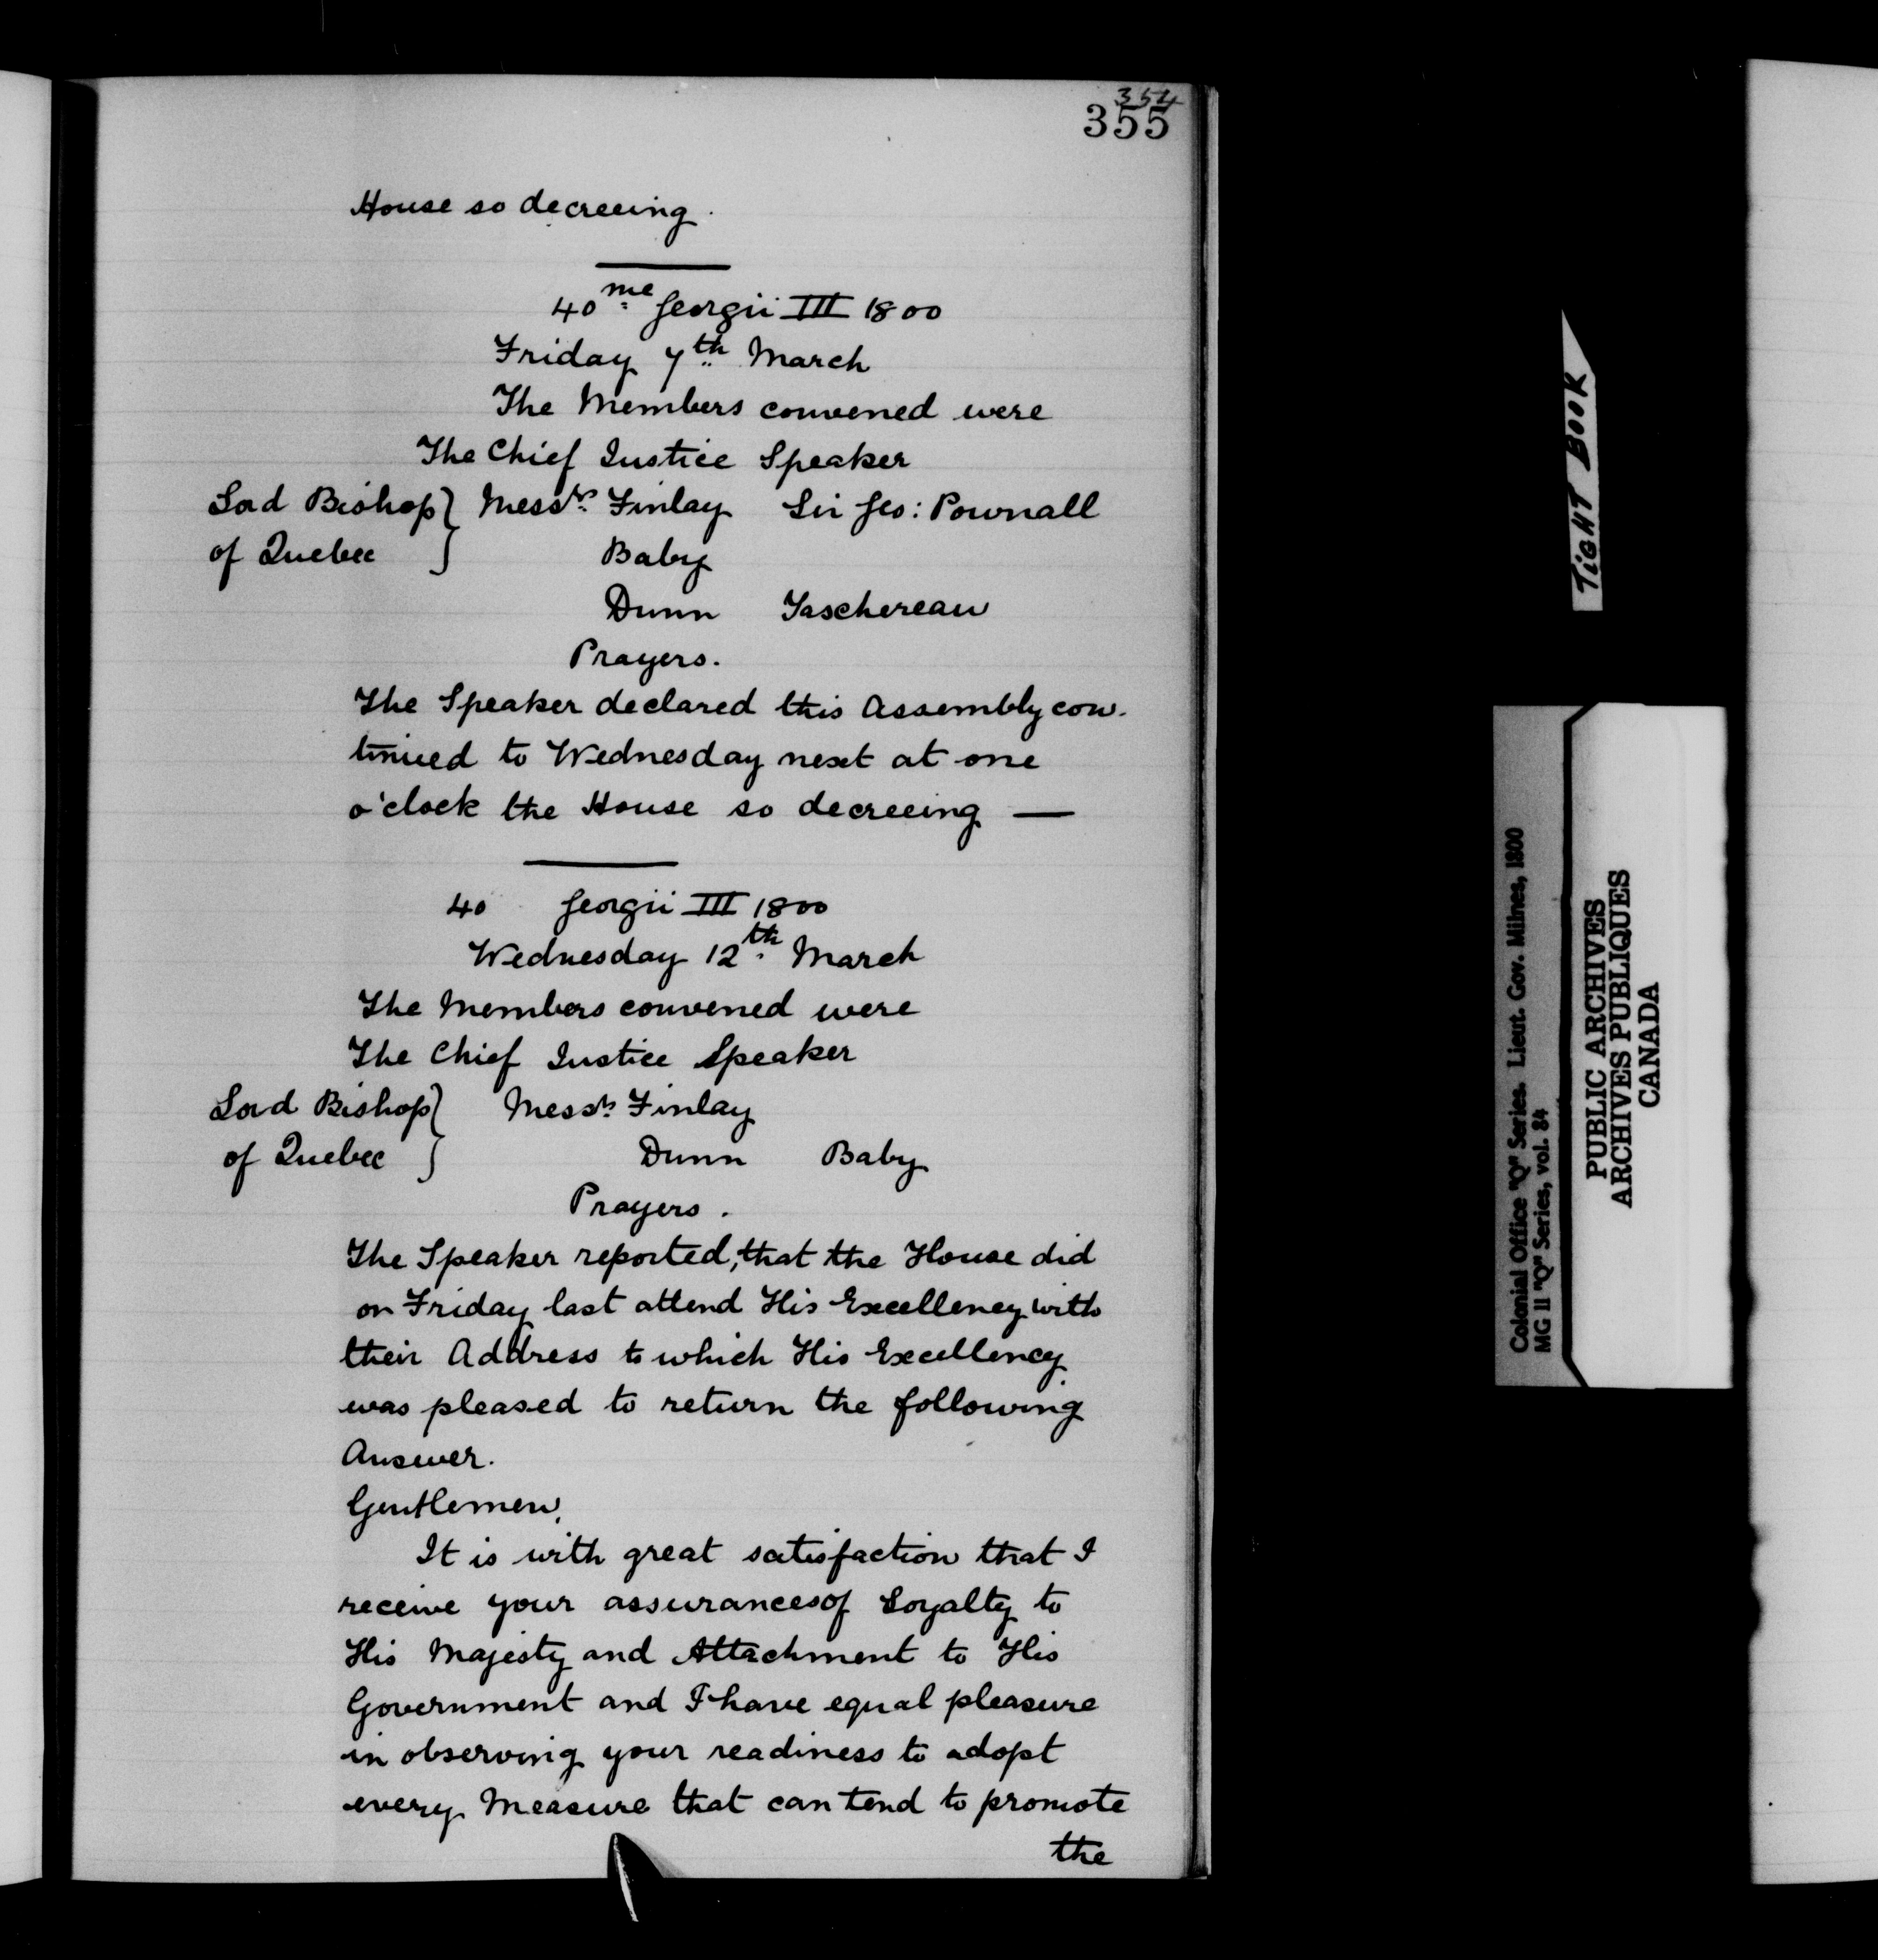 354
355
House so decreeing.
40me Georgii III 1800
Friday 7th March
The Members convened were
The Chief Justice Speaker
Lord Bishop } Messrs. Finlay Sir Geo: Pownall
of Quebec } Baby
Dunn Taschereau
Prayers.
The Speaker declared this Assembly con-
tinued to Wednesday next at one
o'clock the House so decreeing —
40 Georgii III 1800
Wednesday 12th March
The Members convened were
The Chief Justice Speaker
Lord Bishop } Messrs. Finlay
of Quebec } Dunn Baby
Prayers.
The Speaker reported, that the House did
on Friday last attend His Excellency with
their Address to which His Excellency
was pleased to return the following
Answer.
Gentlemen,
It is with great satisfaction that I
receive your assurances of Loyalty to
His Majesty and Attachment to His
Government and I have equal pleasure
in observing your readiness to adopt
every Measure that can tend to promote
the
TIGHT BOOK
Colonial Office "Q" Series. Lieut. Gov. Milnes, 1800
MG 11 "Q" Series, vol. 84
PUBLIC ARCHIVES
ARCHIVES PUBLIQUES
CANADA